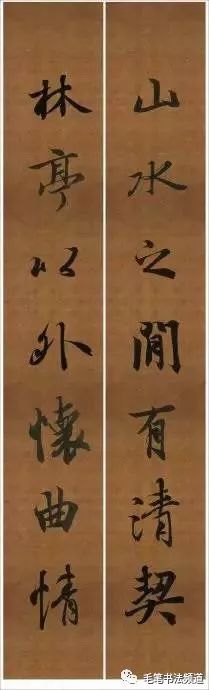 山水之間有清契
林亭以外懷曲情
毛笔书法频道